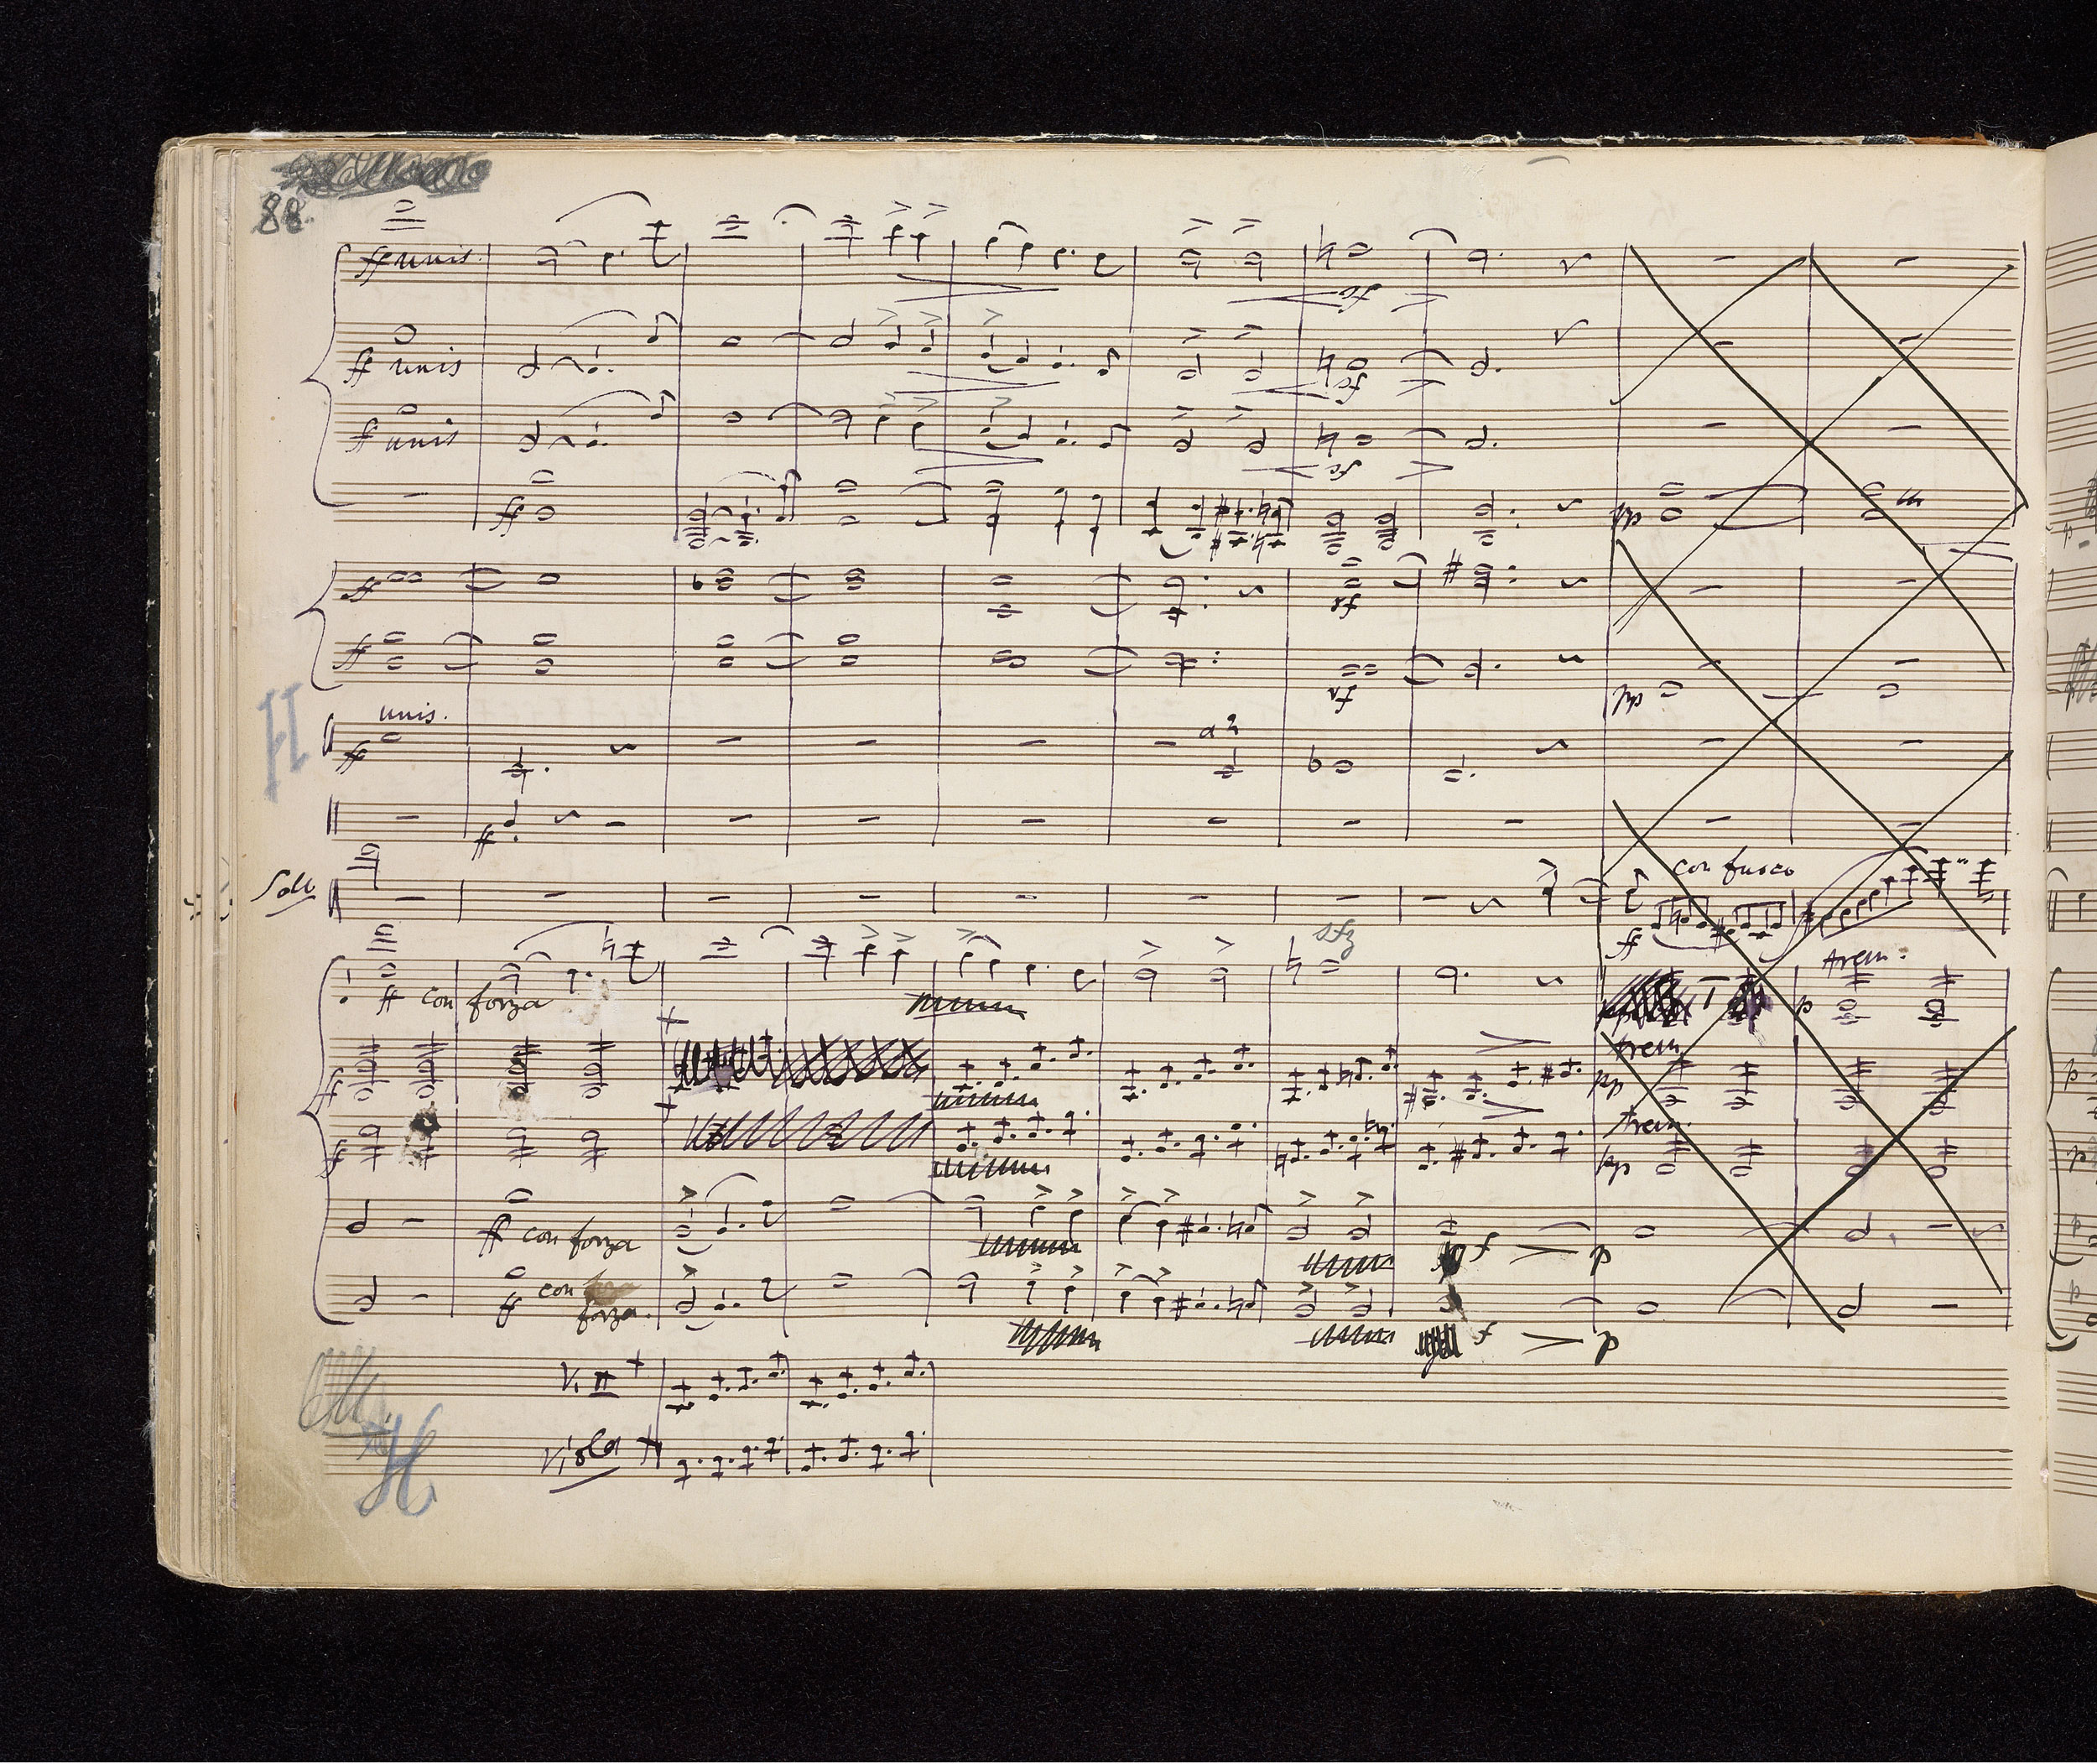 88.
ff unis.
fz
ff unis
fz
ff unis
fz
ff
pp
ff
fz
ff
fz
pp
unis.
ff
a2
H
ff
Solo
con fuoco
ff
sfz
trem:
ff con forza
p
trem.
ff
pp
trem.
ff
pp
ff con forza
f
p
ff con forza.
f
p
V. II +
Viola +
H